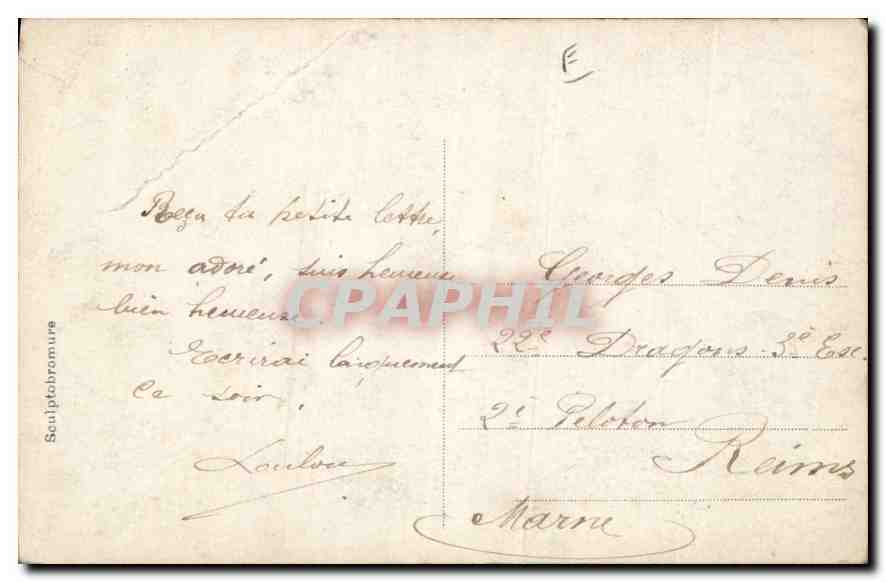 E
Reçu ta petite lettre,
mon adoré, suis heureuse
bien heureuse
Ecrirai longuement
ce soir.
Loulou
Georges Denis
22e Dragons. 3e Esc.
2e Peloton
Reims
Marne
Sculptobromure
CPAPHIL